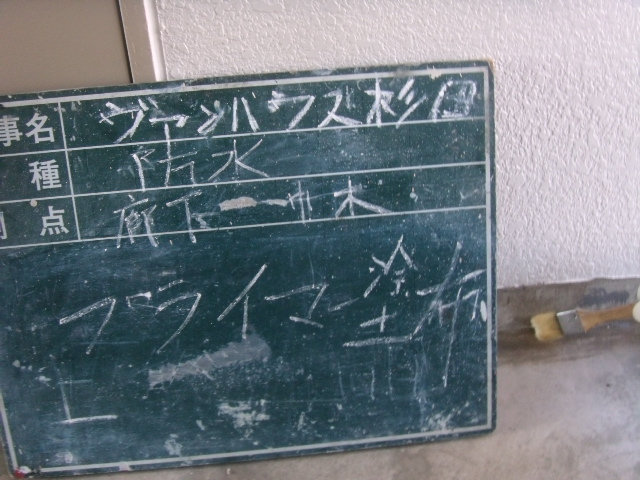 事名 ヴァンハウス杉田
種 防水
点 廊下 巾木
プライマー塗布